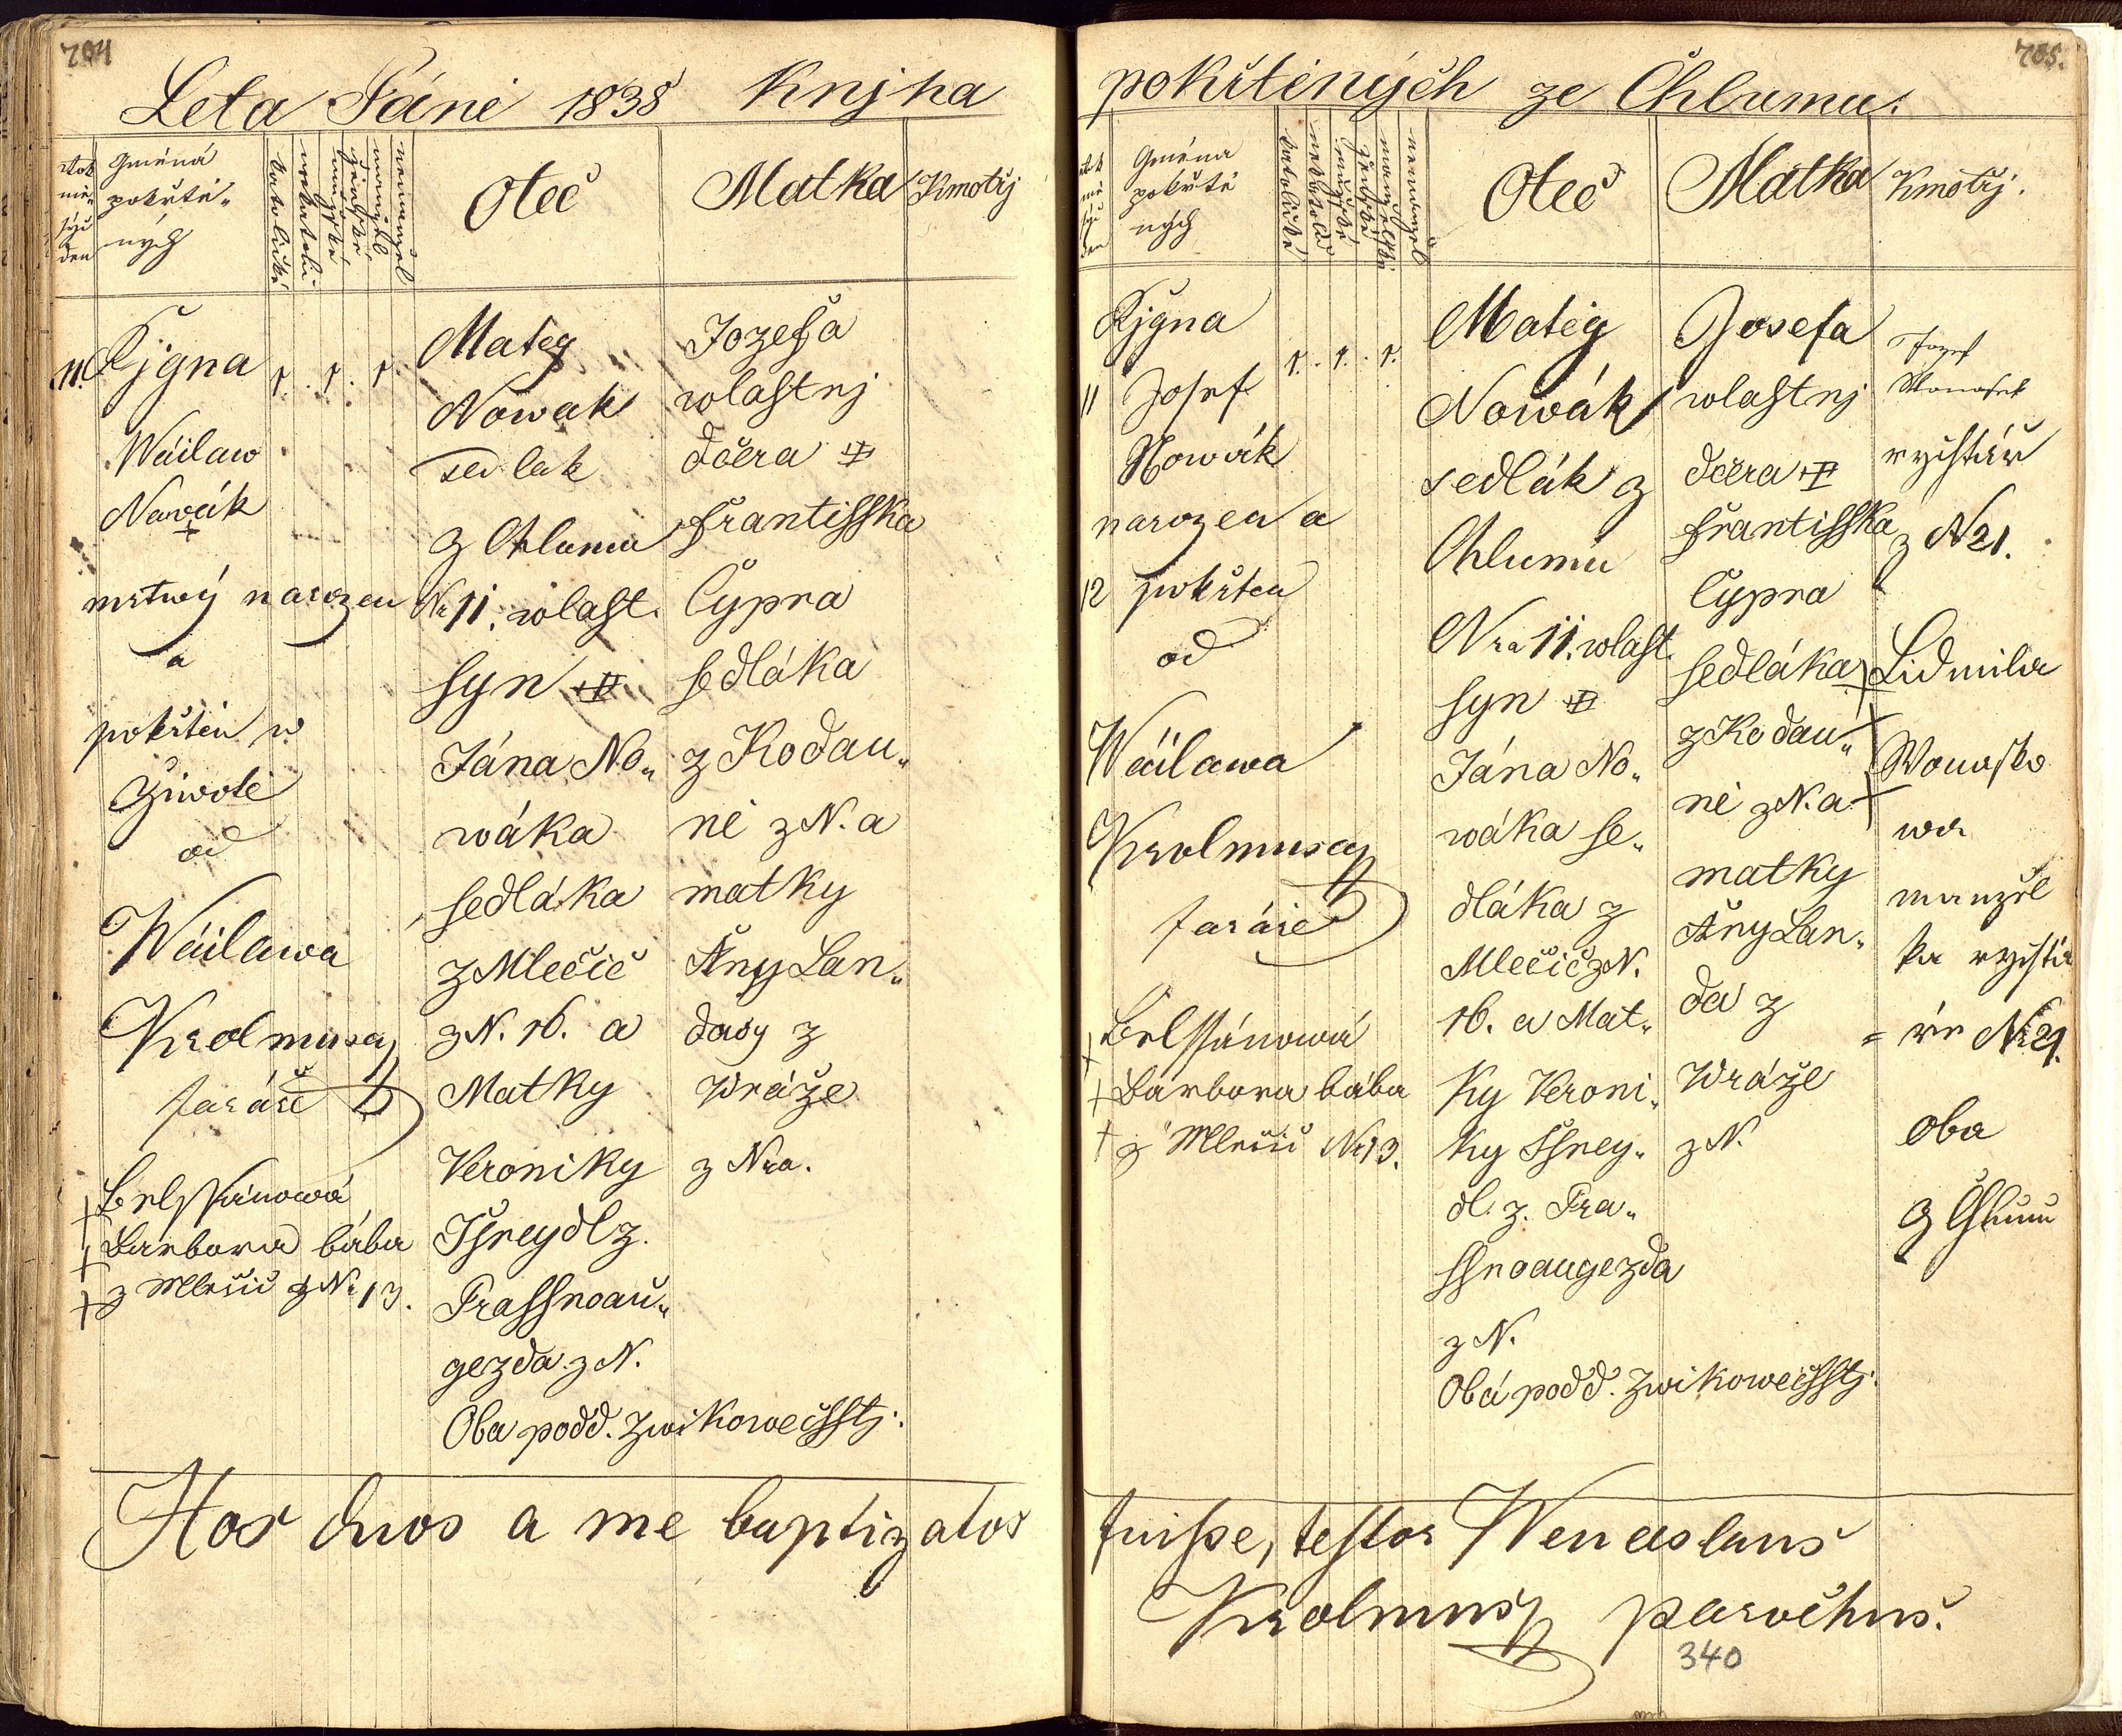 704
Leta Páně 1838 Knjha
Rok
měs
sýc
den
Gména
pokřtě„
ných
katolické
nekatoli
mužské
ženské
manžel
nemanžel
Otec
Matka
Kmotřj
11. Řjgna
Wáclaw
Nowák
+
mrtwý narozen
a
pokřtěn w
Žiwotě
od
Wáclawa
Krolmusa
faráře
Belssánowá
Barbora bába
z Mlečic z N. 13.
1. 1. 1
Matěg
Nowak
sedlak
z Chlumu
Nr 11. wlast.
syn
Jána No„
wáka
sedláka
z Mlečic
z N. 16. a
Matky
Veroniky
Sshneydl z.
Prassnoau„
gezda z N.
Oba podd. Zwikowečsstj.
Jozefa
wlastnj
dcera
Frantisska
Cypra
sedláka
z Kodau„
ně z N. a
matky
Anny Lan„
dový z
Wráže
z Nro.
Hos duos a me baptizatos
705.
pokřtěných ze Chlumu.
Rok
mě
syc
den
Gména
pokřtě
ných
katolické
nekatol
mužské
ženské
manželské
nemanžel
Otec
Matka
Kmotřj.
Řjgna
11 Josef
Nowák
narozen a
12 pokřten
od
Wáclawa
Krolmusa
faráře
Belssánowá
Barbora bába
z Mlečic Nr 13.
1. 1. 1.
Matěg
Nowák
sedlák z
Chlumu
Nro 11. wlast.
syn
Jána No„
wáka se„
dláka z
Mlečic z N.
16. a Mat„
ky Veroni„
ky Sshney„
dl. z. Pra„
ssnoaugezda
z N.
Obá podd. Zwikowečsstj.
Josefa
wlastnj
dcera
Frantisska
Cypra
sedláka
z Kodau„
ně z N. a
matky
Anny Lan„
da z
Wráže
z N.
Jozef
Wonasek
rychtář
z N 21.
Lidmila
Wonasko
wa
manžel
ka rychtá
= ře Nr 21.
Oba
z Chlumu
fuisse, testor Wenceslaus
Krolmus parochus.
340